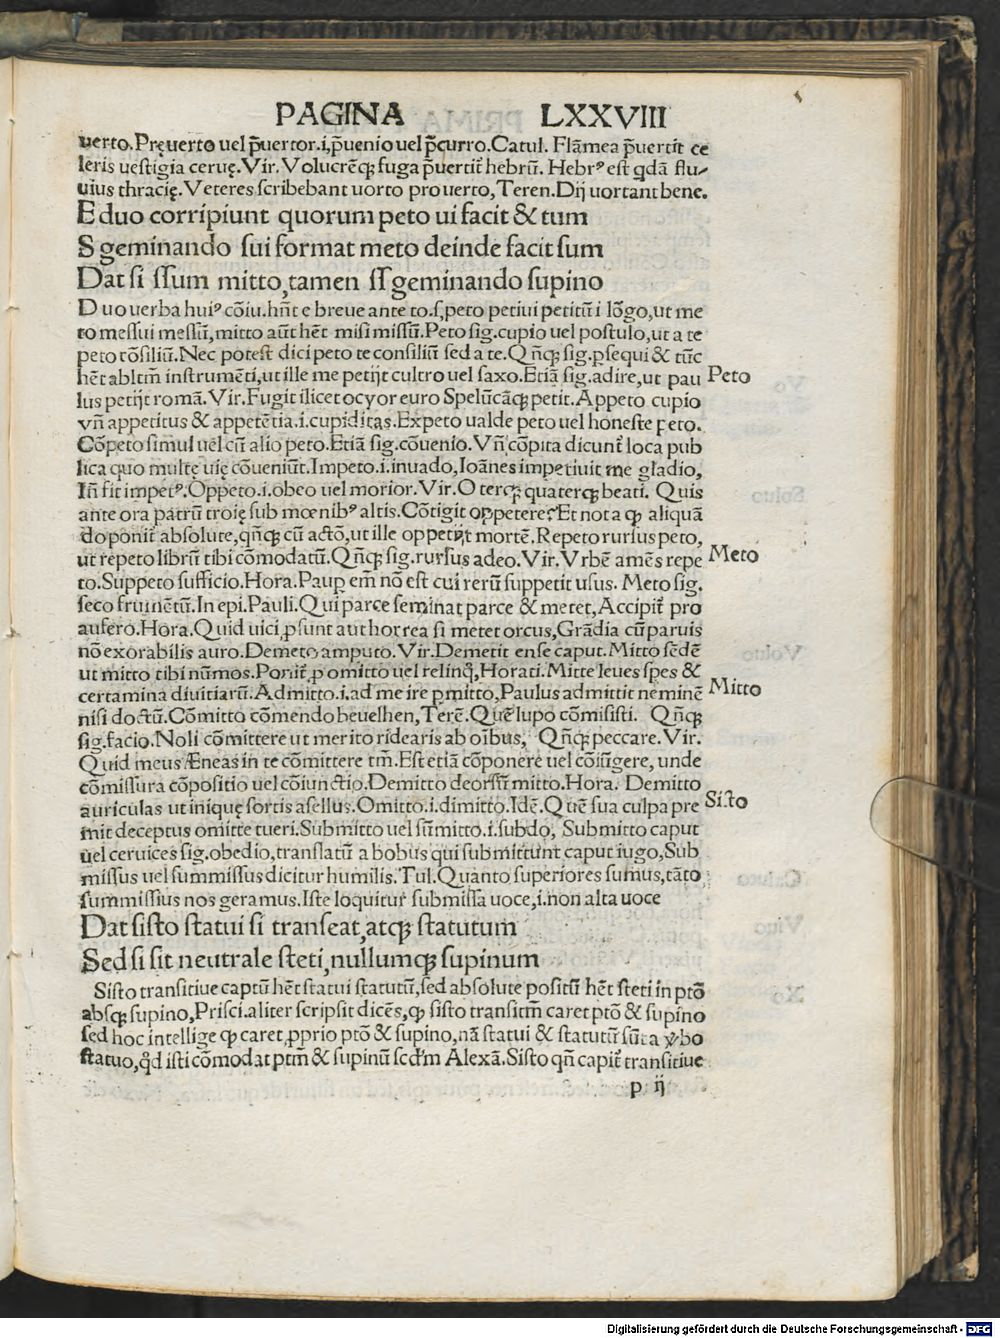 PAGINA LXXVIII
verto. Pręuerto uel p̄uertor.i,p̄uenio uel p̄curro. Catul. Flāmea p̄uertit ce
leris uestigia ceruę. Vir. Volucrēq; fuga p̄uertit̄ hebrū. Hebrꝰ est qdā flu-
uius thracię. Veteres scribebant uorto pro uerto, Teren. Dij uortant bene.
E duo corripiunt quorum peto ui facit & tum
S geminando sui format meto deinde facit sum
Dat si ssum mitto, tamen ss geminando supino
Duo uerba huiꝰ cōiu. hn̄t e breue ante to.s, peto petiui petitū i lōgo, ut me
to messui messū, mitto aūt hēt misi missū. Peto sig. cupio uel postulo, ut a te
peto cōsiliū. Nec potest dici peto te consiliū sed a te. Qn̄q; sig. ꝑsequi & tūc
hēt abltm̄ instrumēti, ut ille me petijt cultro uel saxo. Etiā sig. adire, ut pau
Peto
lus petijt romā. Vir. Fugit ilicet ocyor euro Spelūcāq; petit. Appeto cupio
vn̄ appetitus & appetētia.i. cupiditas. Expeto ualde peto uel honeste peto.
Cōpeto simul uel cū alio peto. Etiā sig. cōuenio. Vn̄ cōpita dicunt̄ loca pub
lica quo multę uię cōueniūt. Impeto.i. inuado, Ioānes impetiuit me gladio,
In̄ fit impetꝰ. Oppeto.i. obeo uel morior. Vir. O terq; quaterq; beati. Quis
ante ora patrū troię sub mœnibꝰ altis. Cōtigit oppetere? Et nota ꝙ aliquā
do ponit̄ absolute, qn̄q; cū actō, ut ille oppetijt mortē. Repeto rursus peto,
ut repeto librū tibi cōmodatū. Qn̄q; sig. rursus adeo. Vir. Vrbē amēs repe
Meto
to. Suppeto sufficio. Hora. Paup em̄ nō est cui rerū suppetit usus. Meto sig.
seco frumētū. In epi. Pauli. Qui parce seminat parce & metet, Accipit̄ pro
aufero. Hora. Quid uici ꝓsunt aut horrea si metet orcus, Grādia cū paruis
nō exorabilis auro. Demeto amputo. Vir. Demetit ense caput. Mitto sēdē
ut mitto tibi nūmos. Ponit̄ ꝓ omitto uel relinq̄, Horati. Mitte leues spes &
certamina diuitiarū. Admitto.i. ad me ire ꝑmitto, Paulus admittit neminē
Mitto
nisi doctū. Cōmitto cōmendo beuelhen, Terē. Quē lupo cōmisisti. Qn̄q;
sig. facio. Noli cōmittere ut merito ridearis ab oībus, Qn̄q; peccare. Vir.
Quid meus Æneas in te cōmittere tm̄. Est etiā cōponere uel cōiūgere, unde
cōmissura cōpositio uel cōiunctio. Demitto deorsū mitto. Hora. Demitto
auriculas ut iniquę sortis asellus. Omitto.i. dimitto. Idē. Quē sua culpa pre
Sisto
mit deceptus omitte tueri. Submitto uel sūmitto.i. subdo, Submitto caput
uel ceruices sig. obedio, translatū a bobus qui submittunt caput iugo, Sub
missus uel summissus dicitur humilis. Tul. Quanto superiores sumus, tāto
summissius nos geramus. Iste loquitur submissa uoce, i. non alta uoce
Dat sisto statui si transeat, atq; statutum
Sed si sit neutrale steti, nullumq; supinum
Sisto transitiue captū hēt statui statutū, sed absolute positū hēt steti in ptō
absq; supino, Prisci. aliter scripsit dicēs, ꝙ sisto transitm̄ caret ptō & supino
sed hoc intellige ꝙ caret ꝓprio ptō & supino, nā statui & statutū sūta v̄bo
statuo, qd̄ isti cōmodat ptm̄ & supinū scdm̄ Alexā. Sisto qn̄ capit̄ transitiue
p ij
Digitalisierung gefördert durch die Deutsche Forschungsgemeinschaft - DFG